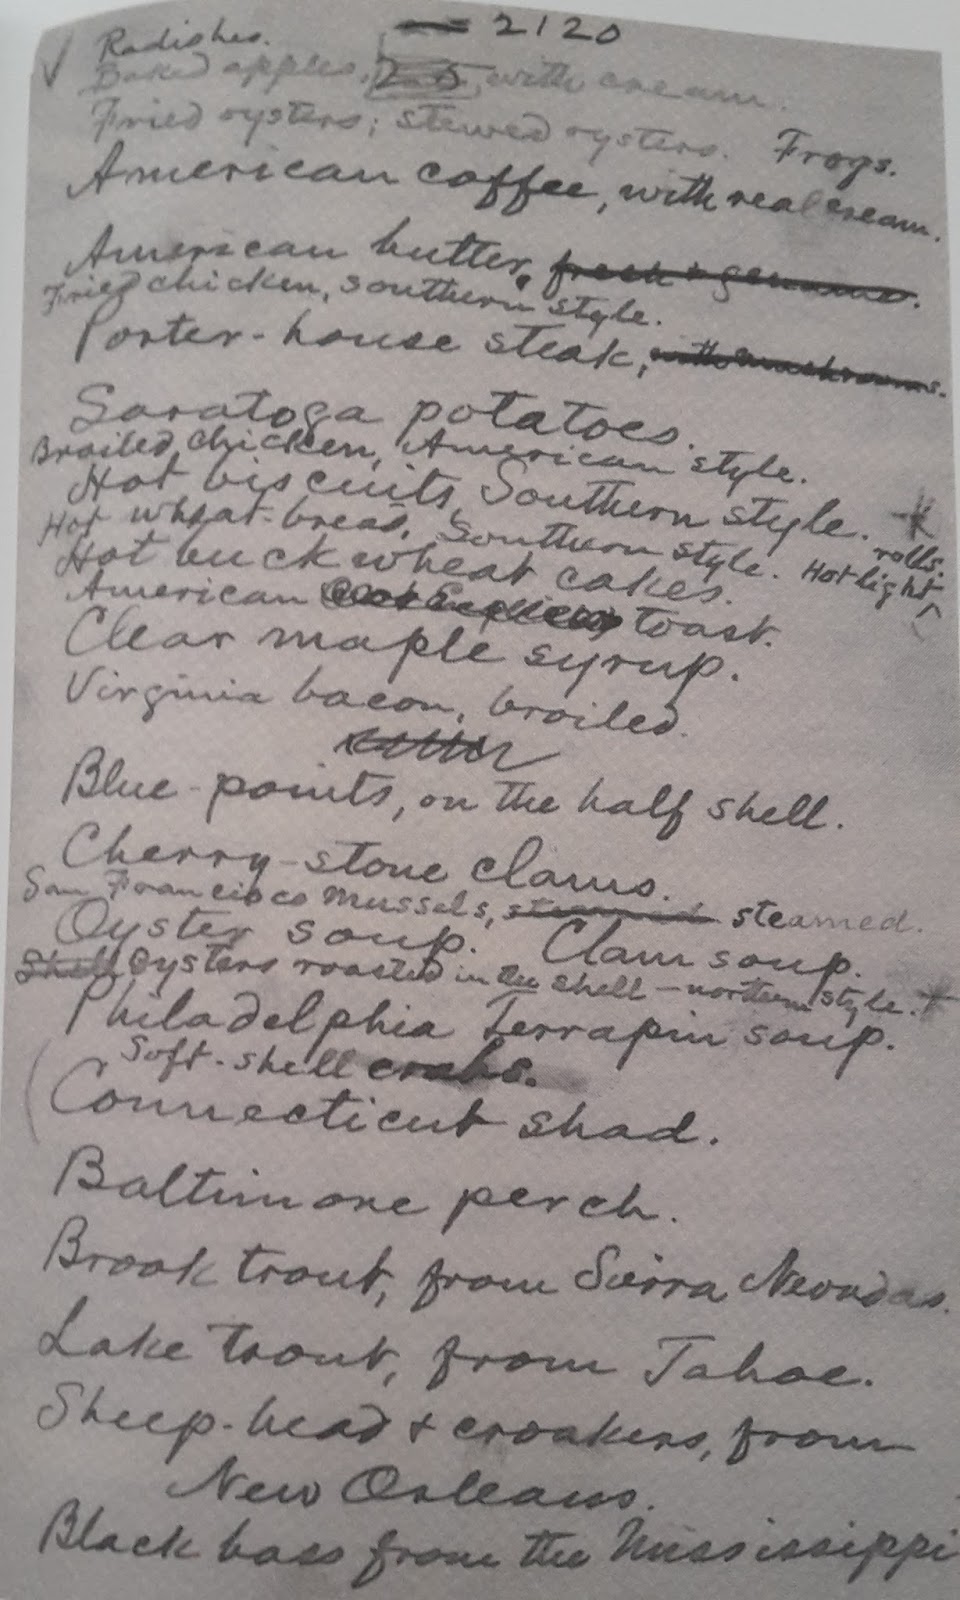 2120
Radishes.
Baked apples, with cream.
Fried oysters; stewed oysters. Frogs.
American coffee, with real cream.
American butter.
Fried chicken, southern style.
Porter-house steak, with mushrooms.
Saratoga potatoes.
Broiled chicken, American style.
Hot biscuits, Southern style.
Hot wheat-bread, Southern style. Hot light rolls.
Hot buckwheat cakes.
American toast.
Clear maple syrup.
Virginia bacon, broiled.
Blue-points, on the half shell.
Cherry-stone clams.
San Francisco mussels, steamed steamed.
Oyster soup. Clam soup.
Shell Oysters roasted in the shell - northern style.
Philadelphia Terrapin soup.
Soft-shell crabs.
Connecticut shad.
Baltimore perch.
Brook trout, from Sierra Nevadas.
Lake trout, from Tahoe.
Sheep-head & croakers, from
New Orleans.
Black bass from the Mississippi